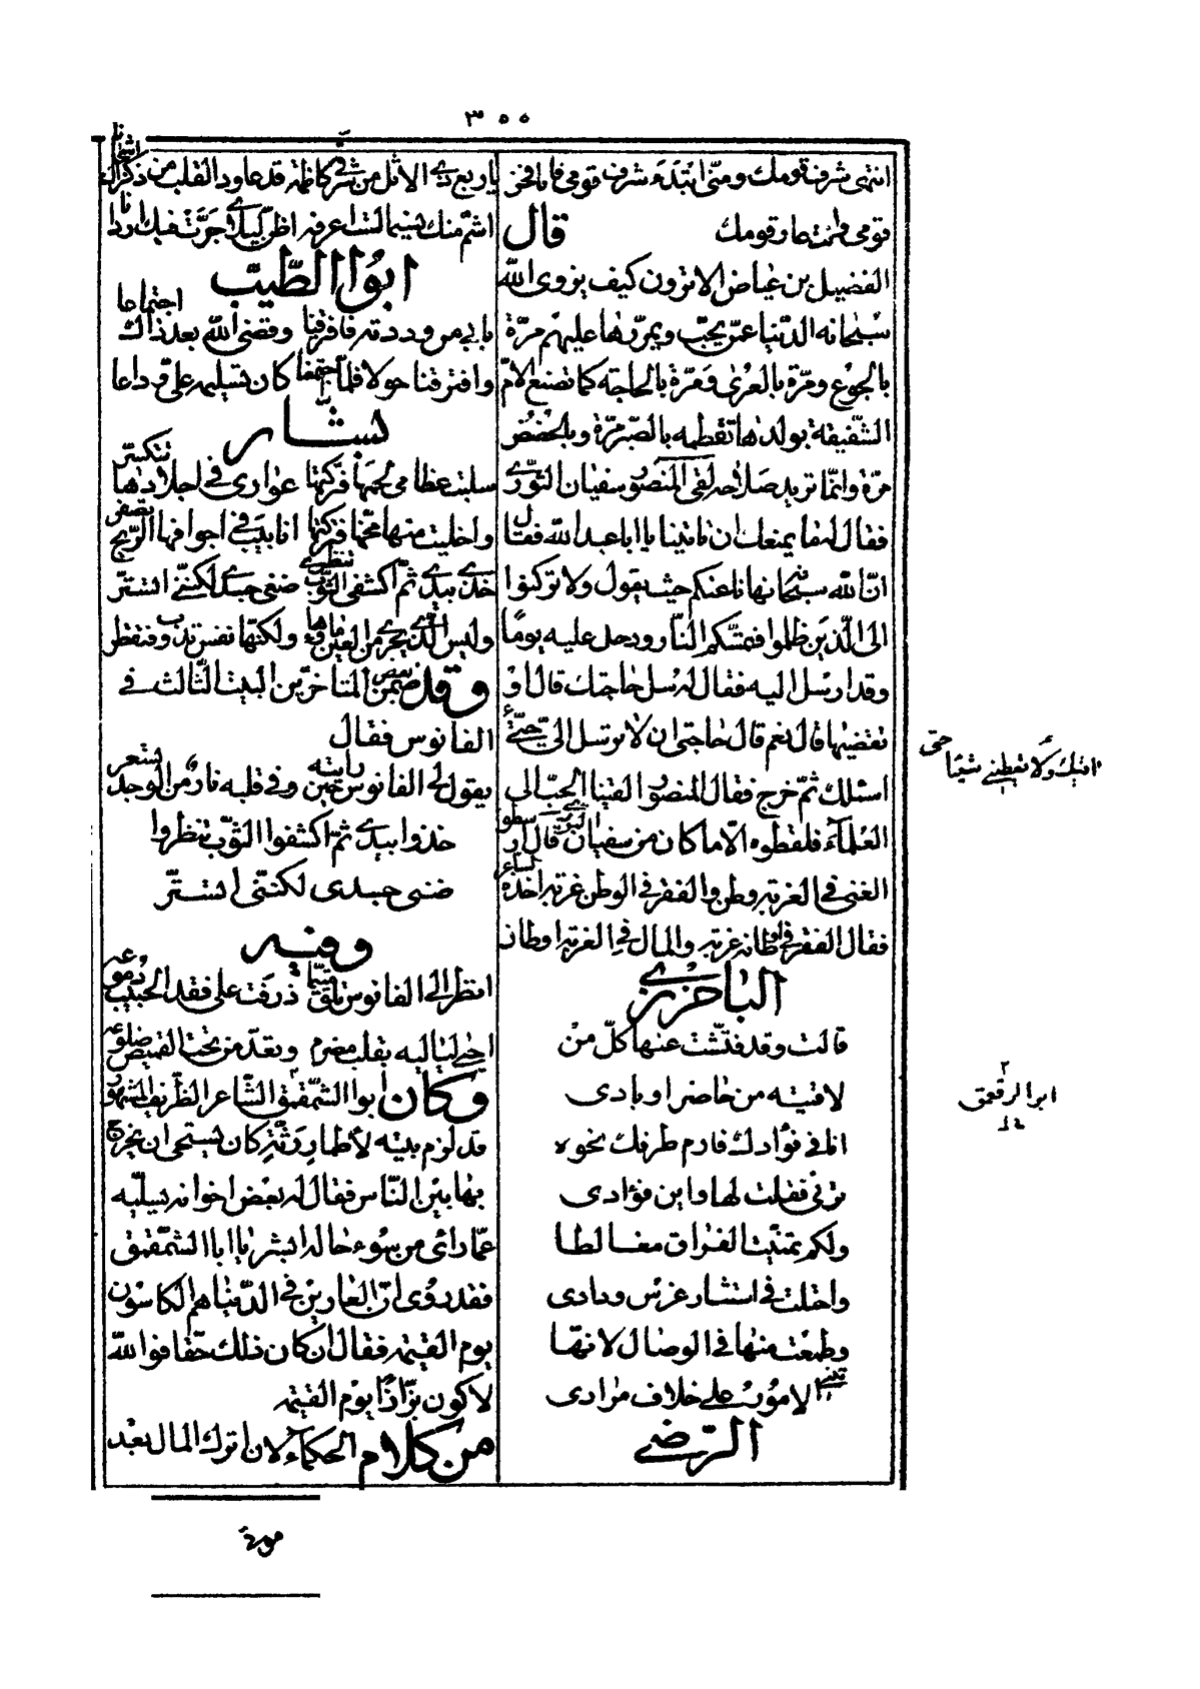 ٣٥٥
انتهى شرف قومك ومنّى ابتدء شرف قومى فانا فخر
قومى وانت عار قومك قال
الفضيل بن عياض الا ترون كيف يزوى الله
سبحانه الدّنيا عمّن يحبّ ويمرّرها عليهم مرّة
بالجوع ومرّة بالعرى ومرّة بالحاجة كما تصنع الامّ
الشّفيقة بولدها تفطمه بالصّبر مرّة وبالحضض
مرّة وانّما تريد صلاحه لقى المنصور سفيان الثّورى
فقال له ما يمنعك ان تاتينا يا ابا عبد الله فقال
انّ الله سبحانه نهانا عنكم حيث يقول ولا تركنوا
الى الّذين ظلموا فتمسّكم النّار ودخل عليه يومًا
وقد ارسل اليه فقال له سل حاجتك قال او
تقضيها قال نعم قال حاجتى ان لا ترسل الىّ حتّى
اتيك ولا تعطينى شيئا حتى
اسئلك ثمّ خرج فقال المنصور القينا الحبّ الى
العلمآء فلقطوه الّا ما كان من سفيان الثورى قال ارسطو
الغنى فى الغربة وطن والفقر فى الوطن غربة اخذه الشاعر
فقال الفقر فى اوطانه غربة والمال فى الغربة اوطان
الباخرزى
قالت وقد فتّشت عنها كلّ من
لاقيته من حاضر او بادى
انا فى فؤادك فارم طرفك نحوه
ترنى فقلت لها واين فؤادى
ولكم تمنّيت الفراق مغالطا
واحتلت فى استثمار غرس ودادى
وطمعت منها فى الوصال لانّها
تبنى الامور على خلاف مرادى
الرّضى
يا ربع ذى الاثل من شرقى كاظمة قد عاود القلب من ذكراك اشجانا
اشمّ منك نسيما لست اعرفه اظنّ ليلى جرّت فيك اردانا
ابو الطّيّب
بابى من وددته فافترقنا وقضى الله بعد ذاك اجتماعا
وافترقنا حولا فلمّا اجتمعنا كان تسليمه علىّ وداعا
بشّار
سلبت عظامى لحمها فتركتها عوارى فى اجلادها تتكسّر
واخليت منها مخّها فتركتها انابيب فى اجوافها الرّيح تصفر
خذى بيدى ثمّ اكشفى الثّوب تنظرى ضنى جسدى لكنّنى اتستّر
وليس الّذى يجرى من العين ماءها ولكنّها نفس تذوب وتقطر
وقد ضمّن بعض المتاخّرين البيت الثّالث فى
الفانوس فقال
يقول لى الفانوس حين رايته وفى قلبه نار من الوجد تسعر
خذوا بيدى ثمّ اكشفوا الثّوب تنظروا
ضنى جسدى لكنّنى اتستّر
وفيه
انظر الى الفانوس تلق متيّما ذرفت على فقد الحبيب دموعه
احيى لياليه بقلب مضرم وتعدّ من تحت القميص ضلوعه
وكان ابو الشّمقمق الشّاعر الظّريف المشهور
ابو الرقعمق
قد لزم بيته لأطمار رثّة كان يستحى ان يخرج
بها بين النّاس فقال له بعض اخوانه يسلّيه
عمّا رائى من سوء حاله ابشر يا ابا الشمّقمق
فقد روى انّ العارين فى الدّنيا هم الكاسون
يوم القيمة فقال ان كان ذلك حقّا فوالله
لاكون بزّازًا يوم القيمة
من كلام الحكماء لان اترك المال بعد
موتى